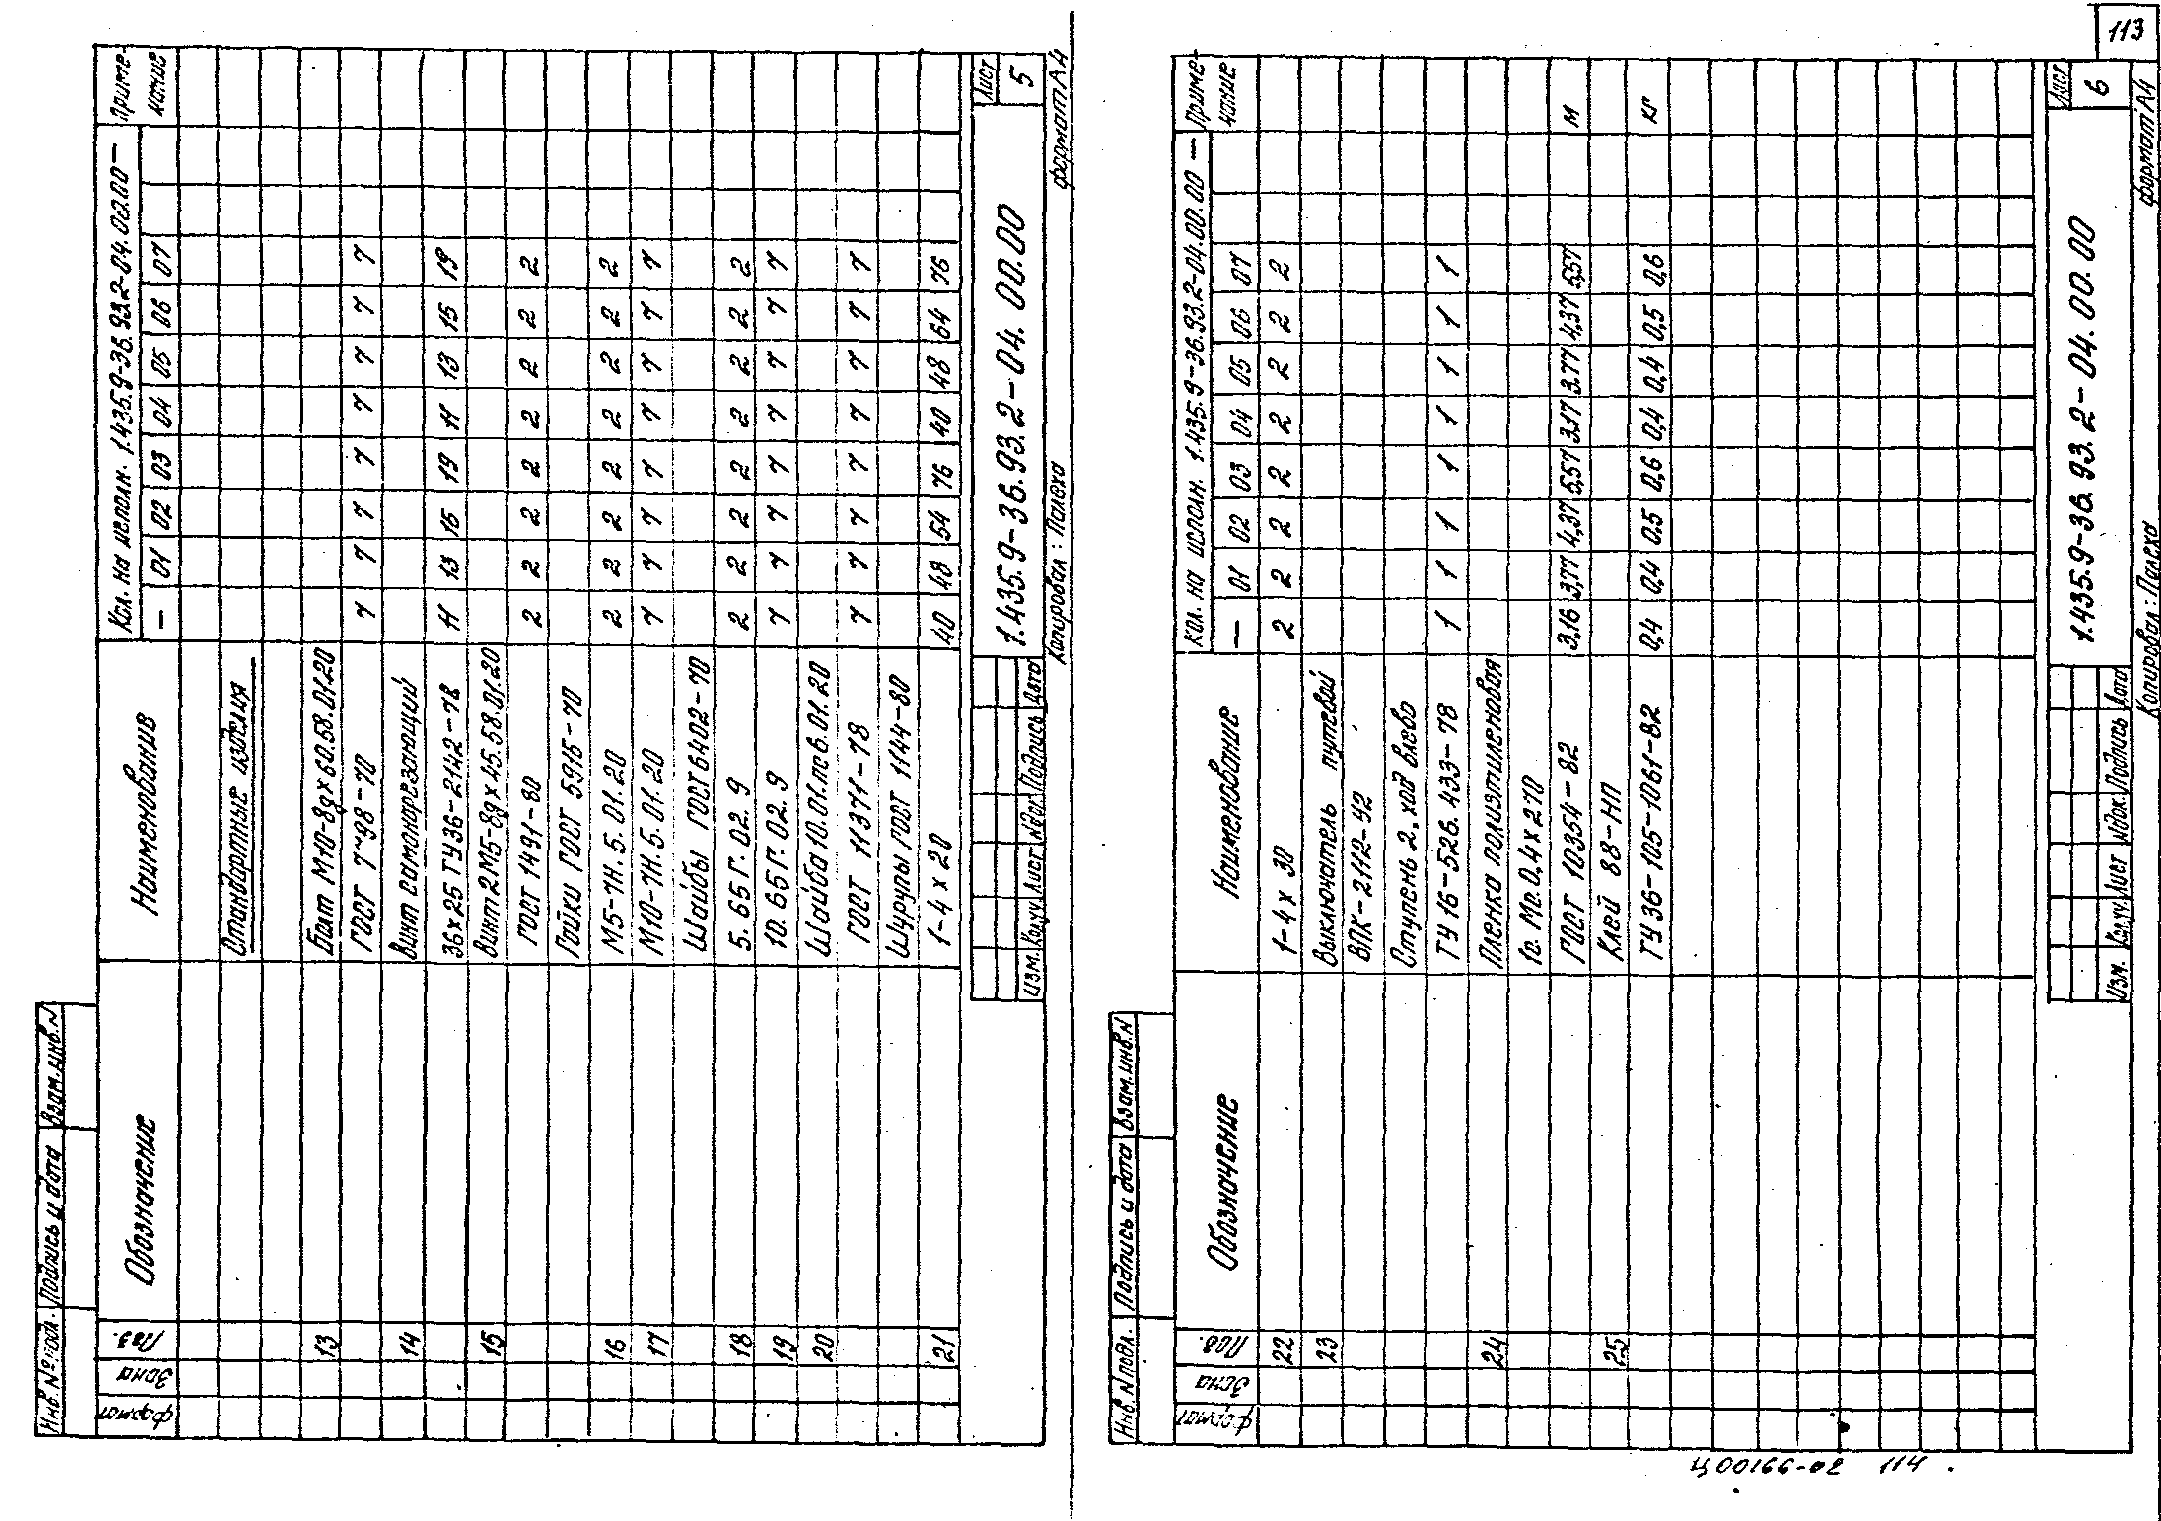 113
Формат
Зона
Поз.
Обозначение
Наименование
Кол. на исполн. 1.435.9-36.93.2-04.00.00 —
Приме-
чание
— 01 02 03 04 05 06 07
Стандартные изделия
13 Болт М10-8gx60.58.01.20
ГОСТ 7798-70 7 7 7 7 7 7 7 7
14 Винт самонарезающий
36х25 ТУ36-2142-78 11 13 15 19 11 13 15 19
15 Винт 2М5-8gх45.58.01.20
ГОСТ 1491-80 2 2 2 2 2 2 2 2
Гайки ГОСТ 5915-70
16 М5-7Н.5.01.20 2 2 2 2 2 2 2 2
17 М10-7Н.5.01.20 7 7 7 7 7 7 7 7
Шайбы ГОСТ 6402-70
18 5.65Г.02.9 2 2 2 2 2 2 2 2
19 10.65Г.02.9 7 7 7 7 7 7 7 7
20 Шайба 10.01.лс6.01.20
ГОСТ 11371-78 7 7 7 7 7 7 7 7
Шурупы ГОСТ 1144-80
21 1-4х20 40 48 54 76 40 48 64 76
Инв.№ подл. Подпись и дата Взам.инв.N
Изм. Кол.уч Лист Nдок Подпись Дата
1.435.9-36.93.2-04.00.00
Лист
5
Копировал: Полеха
формат А4
Формат
Зона
Поз.
Обозначение
Наименование
Кол. на исполн. 1.435.9-36.93.2-04.00.00 —
Приме-
чание
— 01 02 03 04 05 06 07
22 1-4х30 2 2 2 2 2 2 2 2
23 Выключатель путевой
ВПК-2112-У2
Ступень 2, ход влево
ТУ 16-526.433-78 1 1 1 1 1 1 1 1
24 Пленка полиэтиленовая
1с. Мо.0,4х270
ГОСТ 10354-82 3,16 3,77 4,37 5,57 3,17 3.77 4,37 5,57 м
25 Клей 88-НП
ТУ 36-105-1061-82 0,4 0,4 0.5 0,6 0,4 0,4 0,5 0,6 кг
Инв.N подл. Подпись и дата Взам.инв.N
Изм. Кол.уч Лист Nдок. Подпись Дата
1.435.9-36.93.2-04.00.00
Лист
6
Копировал: Полеха
формат А4
Ц00166-02 114